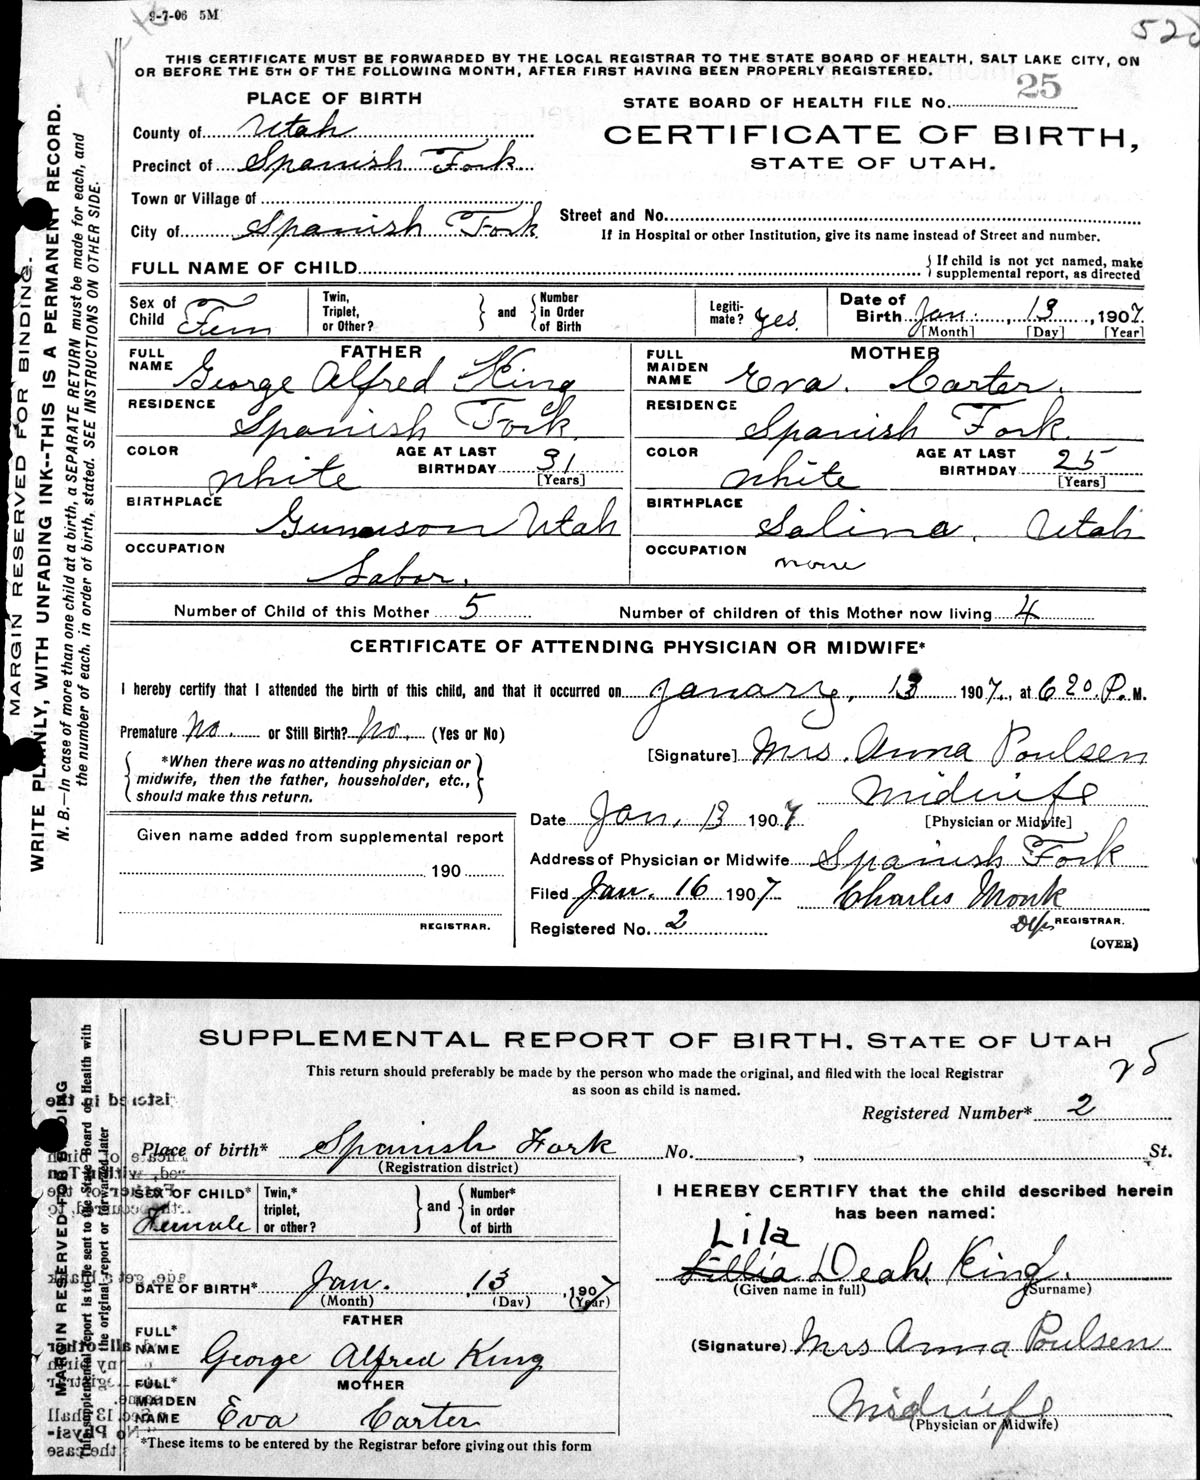 9-7-06 5M
528
THIS CERTIFICATE MUST BE FORWARDED BY THE LOCAL REGISTRAR TO THE STATE BOARD OF HEALTH, SALT LAKE CITY, ON
OR BEFORE THE 5TH OF THE FOLLOWING MONTH, AFTER FIRST HAVING BEEN PROPERLY REGISTERED.
MARGIN RESERVED FOR BINDING.
WRITE PLAINLY, WITH UNFADING INK--THIS IS A PERMANENT RECORD.
N. B.—In case of more than one child at a birth, a SEPARATE RETURN must be made for each, and
the number of each, in order of birth, stated. SEE INSTRUCTIONS ON OTHER SIDE.
PLACE OF BIRTH
County of Utah
Precinct of Spanish Fork
Town or Village of
City of Spanish Fork
STATE BOARD OF HEALTH FILE No. 25
CERTIFICATE OF BIRTH,
STATE OF UTAH.
Street and No.
If in Hospital or other Institution, give its name instead of Street and number.
FULL NAME OF CHILD
If child is not yet named, make
supplemental report, as directed
Sex of Child Fem
Twin, Triplet, or Other?
and
Number in Order of Birth
Legitimate? yes
Date of Birth Jan. 13, 1907
[Month] [Day] [Year]
FATHER
FULL NAME George Alfred King
RESIDENCE Spanish Fork
COLOR White
AGE AT LAST BIRTHDAY 31 [Years]
BIRTHPLACE Gunnison Utah
OCCUPATION Labor.
MOTHER
FULL MAIDEN NAME Eva. Carter.
RESIDENCE Spanish Fork
COLOR White
AGE AT LAST BIRTHDAY 25 [Years]
BIRTHPLACE Salina, Utah
OCCUPATION none
Number of Child of this Mother 5 Number of children of this Mother now living 4
CERTIFICATE OF ATTENDING PHYSICIAN OR MIDWIFE*
I hereby certify that I attended the birth of this child, and that it occurred on Janary, 13 1907, at 6 20 P. M.
Premature No. or Still Birth? No. (Yes or No)
*When there was no attending physician or
midwife, then the father, householder, etc.,
should make this return.
[Signature] Mrs. Anna Poulsen
Midwife
[Physician or Midwife]
Date Jan. 13 1907
Address of Physician or Midwife Spanish Fork
Filed Jan. 16 1907 Charles Monk
Dep REGISTRAR.
Registered No. 2
(OVER)
Given name added from supplemental report
190
REGISTRAR.
SUPPLEMENTAL REPORT OF BIRTH, STATE OF UTAH
25
This return should preferably be made by the person who made the original, and filed with the local Registrar
as soon as child is named.
Registered Number* 2
MARGIN RESERVED FOR BINDING
This supplemental report is to be sent to the State Board of Health with
the original report or forwarded later
Place of birth* Spanish Fork No. , St.
(Registration district)
SEX OF CHILD* Female
Twin,* triplet, or other?
and
Number* in order of birth
DATE OF BIRTH* Jan. 13, 1907
(Month) (Day) (Year)
FATHER
FULL* NAME George Alfred King
MOTHER
FULL* MAIDEN NAME Eva Carter
*These items to be entered by the Registrar before giving out this form
I HEREBY CERTIFY that the child described herein
has been named:
Lila
Lillia Deah King.
(Given name in full) (Surname)
(Signature) Mrs Anna Poulsen
Midwife
(Physician or Midwife)